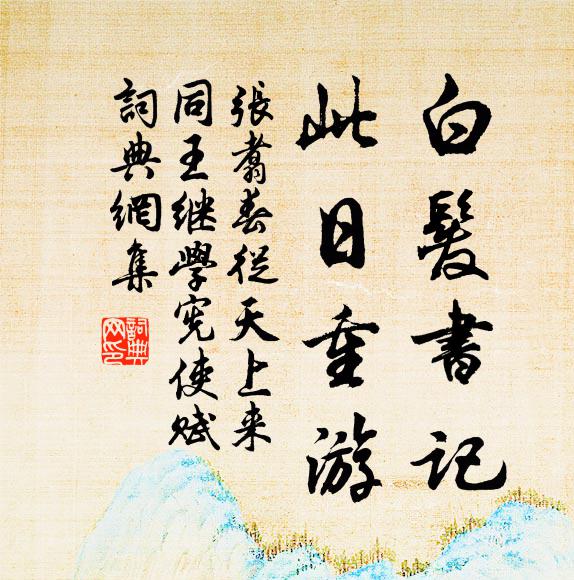 白髮書記
此日重游
張翥春從天上来
同王继學宪使赋
詞典網集
詞典
网印